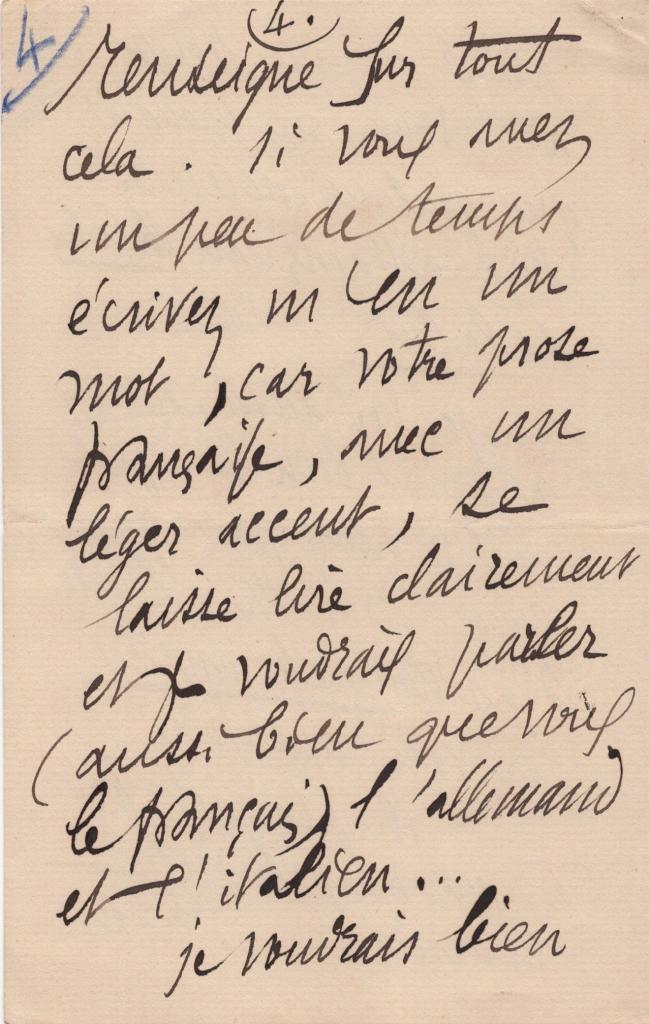 4
(4.
renseigne sur tout
cela. si vous avez
un peu de temps
écrivez m'en un
mot, car votre prose
française, avec un
léger accent, se
laisse lire clairement
et je voudrais parler
(aussi bien que vous
le français) l'allemand
et l'italien...
je voudrais bien